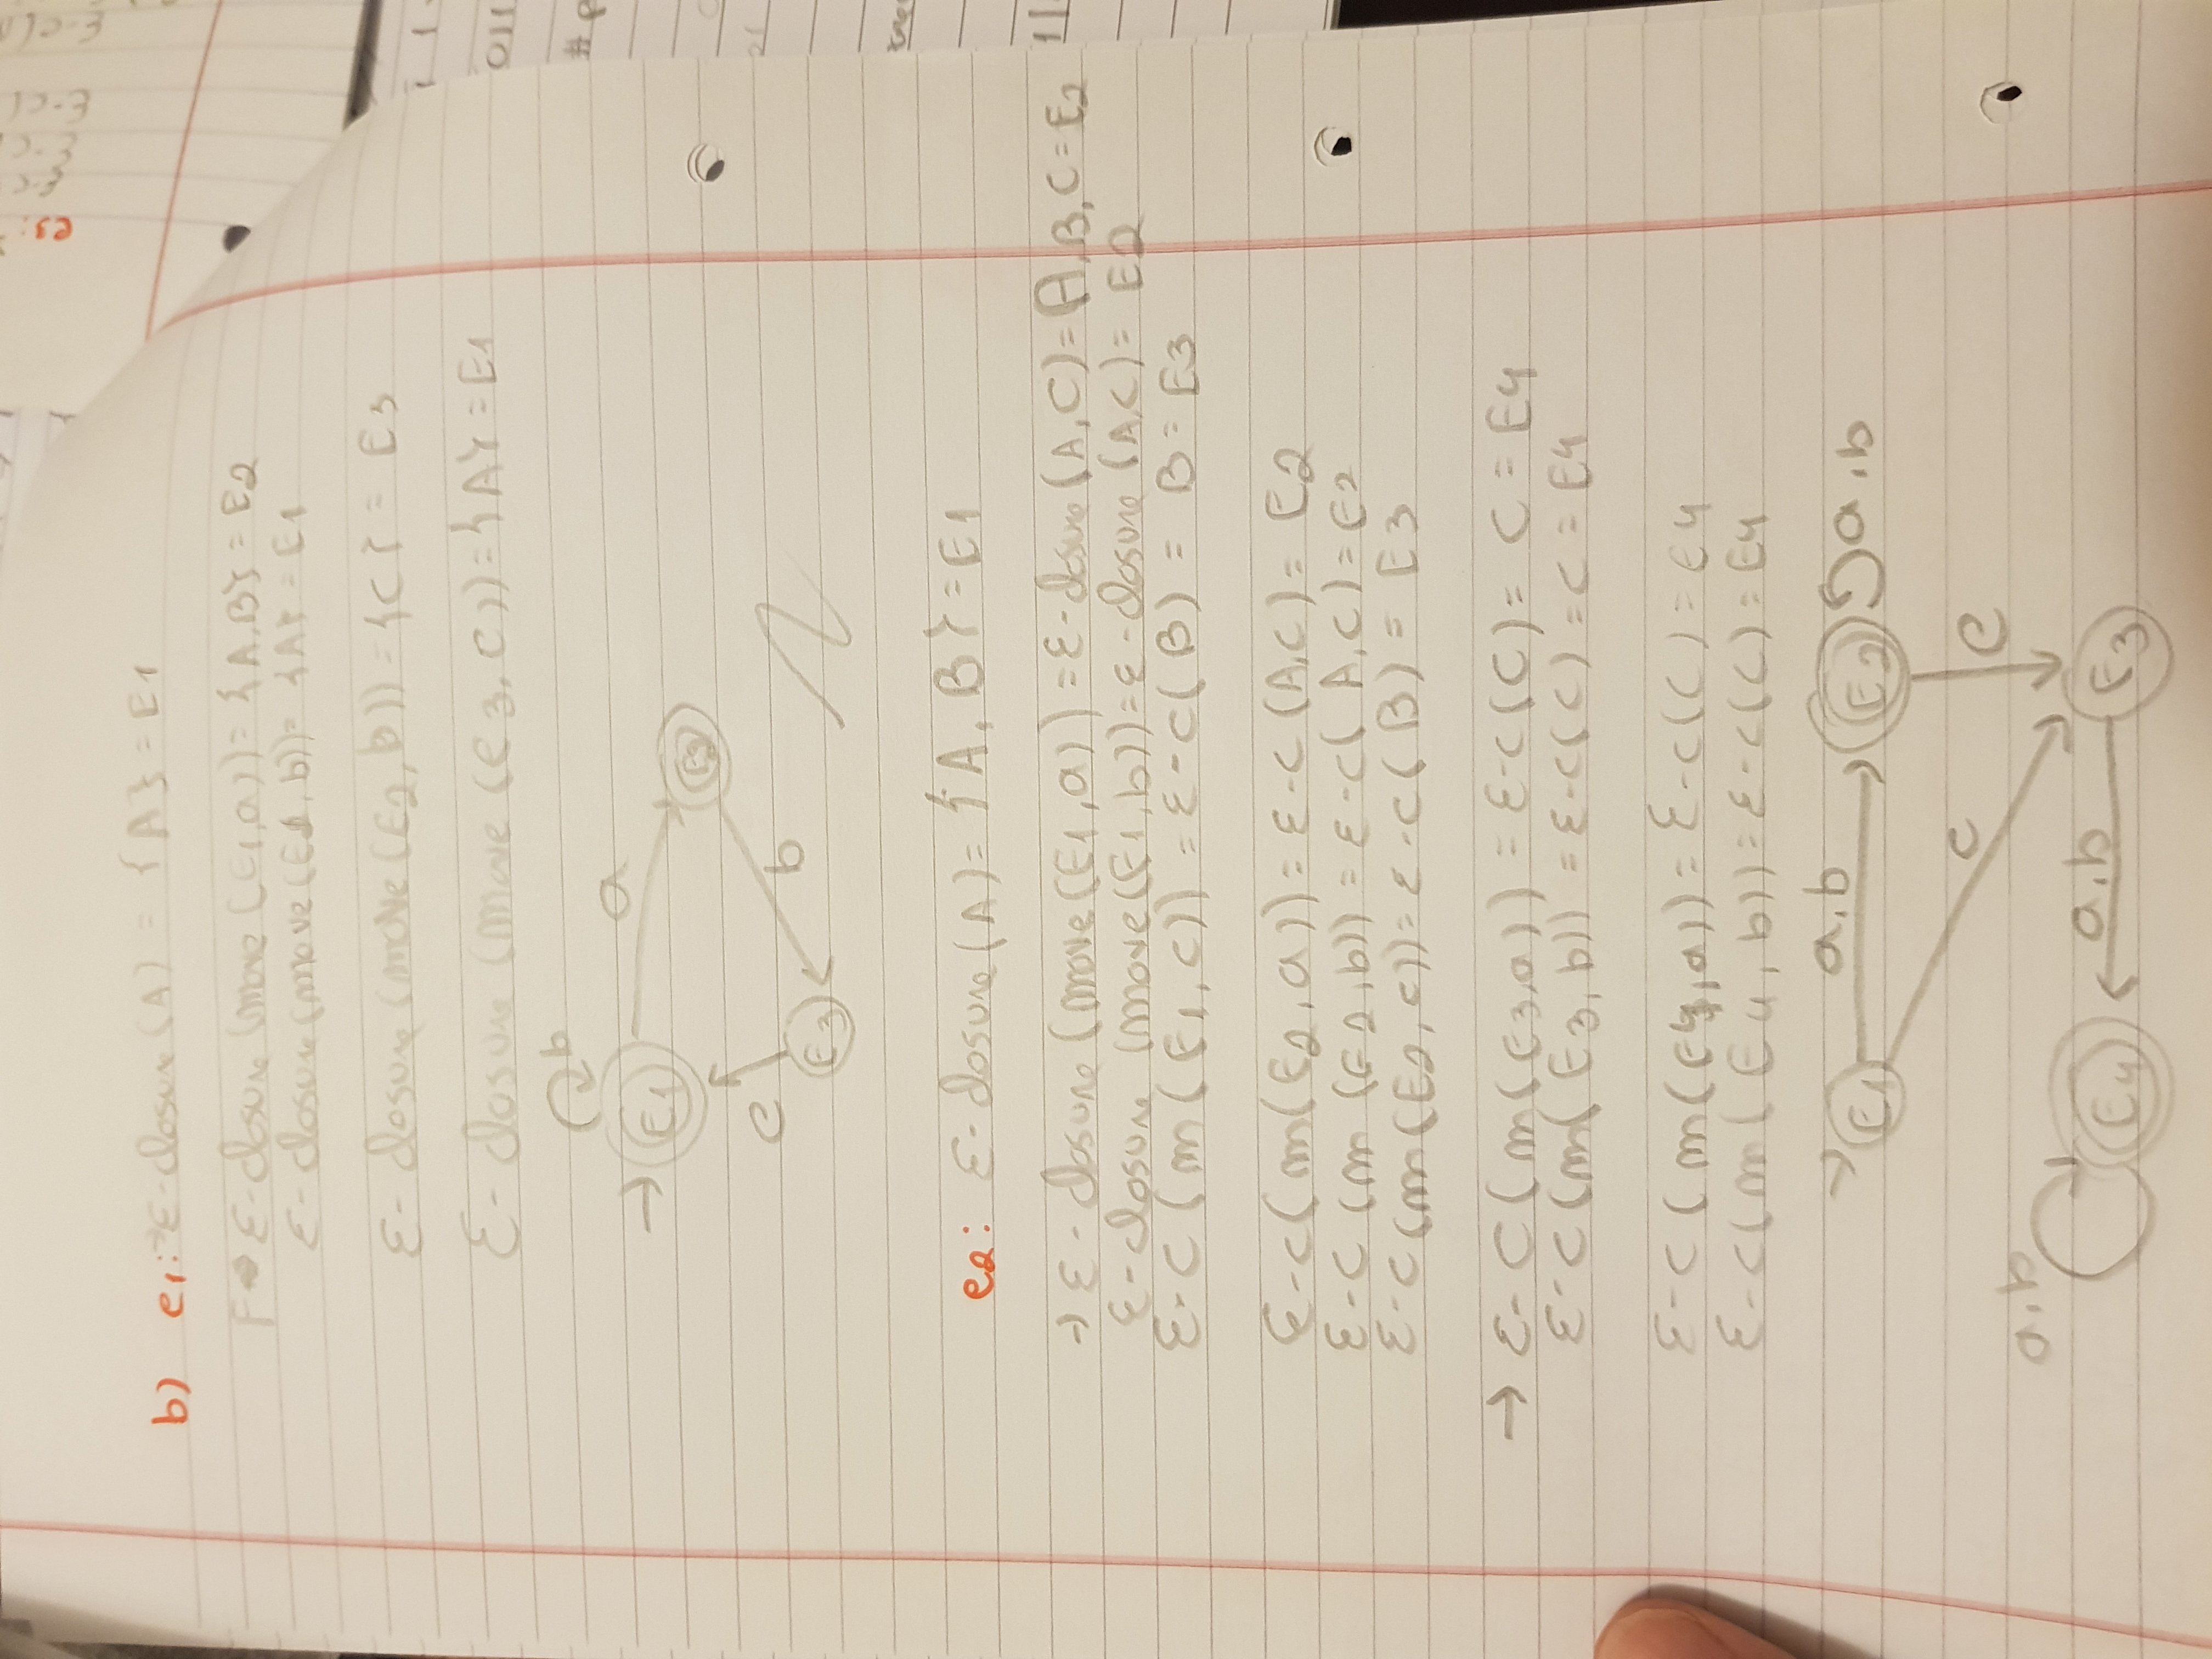 b) e1: → ε-closure(A) = {A} = E1
F → ε-closure (move (E1,a)) = {A,B} = E2
ε-closure (move (E1, b)) = {A} = E1
ε-closure (move (E2, b)) = {C} = E3
ε-closure (move (E3, c)) = {A} = E1
b
a
→ E1
E2
c
b
E3
e2: ε-closure(A) = {A, B} = E1
→ ε-closure (move(E1,a)) = ε-closure (A,C) = A,B,C = E2
ε-closure (move(E1,b)) = ε-closure (A,C) = E2
ε-C (m(E1,c)) = ε-c(B) = B = E3
ε-c(m(E2,a)) = ε-c (A,C) = E2
ε-C (m (E2,b)) = ε-c( A,C) = E2
ε-C (m(E2,c)) = ε-c(B) = E3
→ ε-C (m(E3,a)) = ε-c(C) = C = E4
ε-C (m( E3, b)) = ε-c(C) = C = E4
ε-C (m(E4,a)) = ε-c(C) = E4
ε-c(m( E4, b)) = ε-c(C) = E4
→ E1 a,b E2 a,b
c c
a,b
E4 a,b E3
e3:
011
# P
11